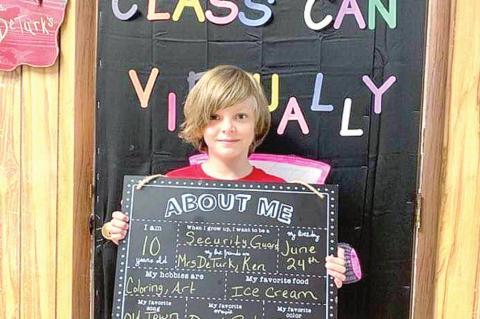 DeTurk's
CLASS CAN
VISUALLY
ABOUT ME
I am
10
years old
When I grow up, I want to be a
Security Guard
my best friends are
Mrs DeTurk, Ken
my birthday
June
24th
My hobbies are
Coloring, Art
My favorite food
Ice Cream
My favorite
song
My favorite
My favorite
color